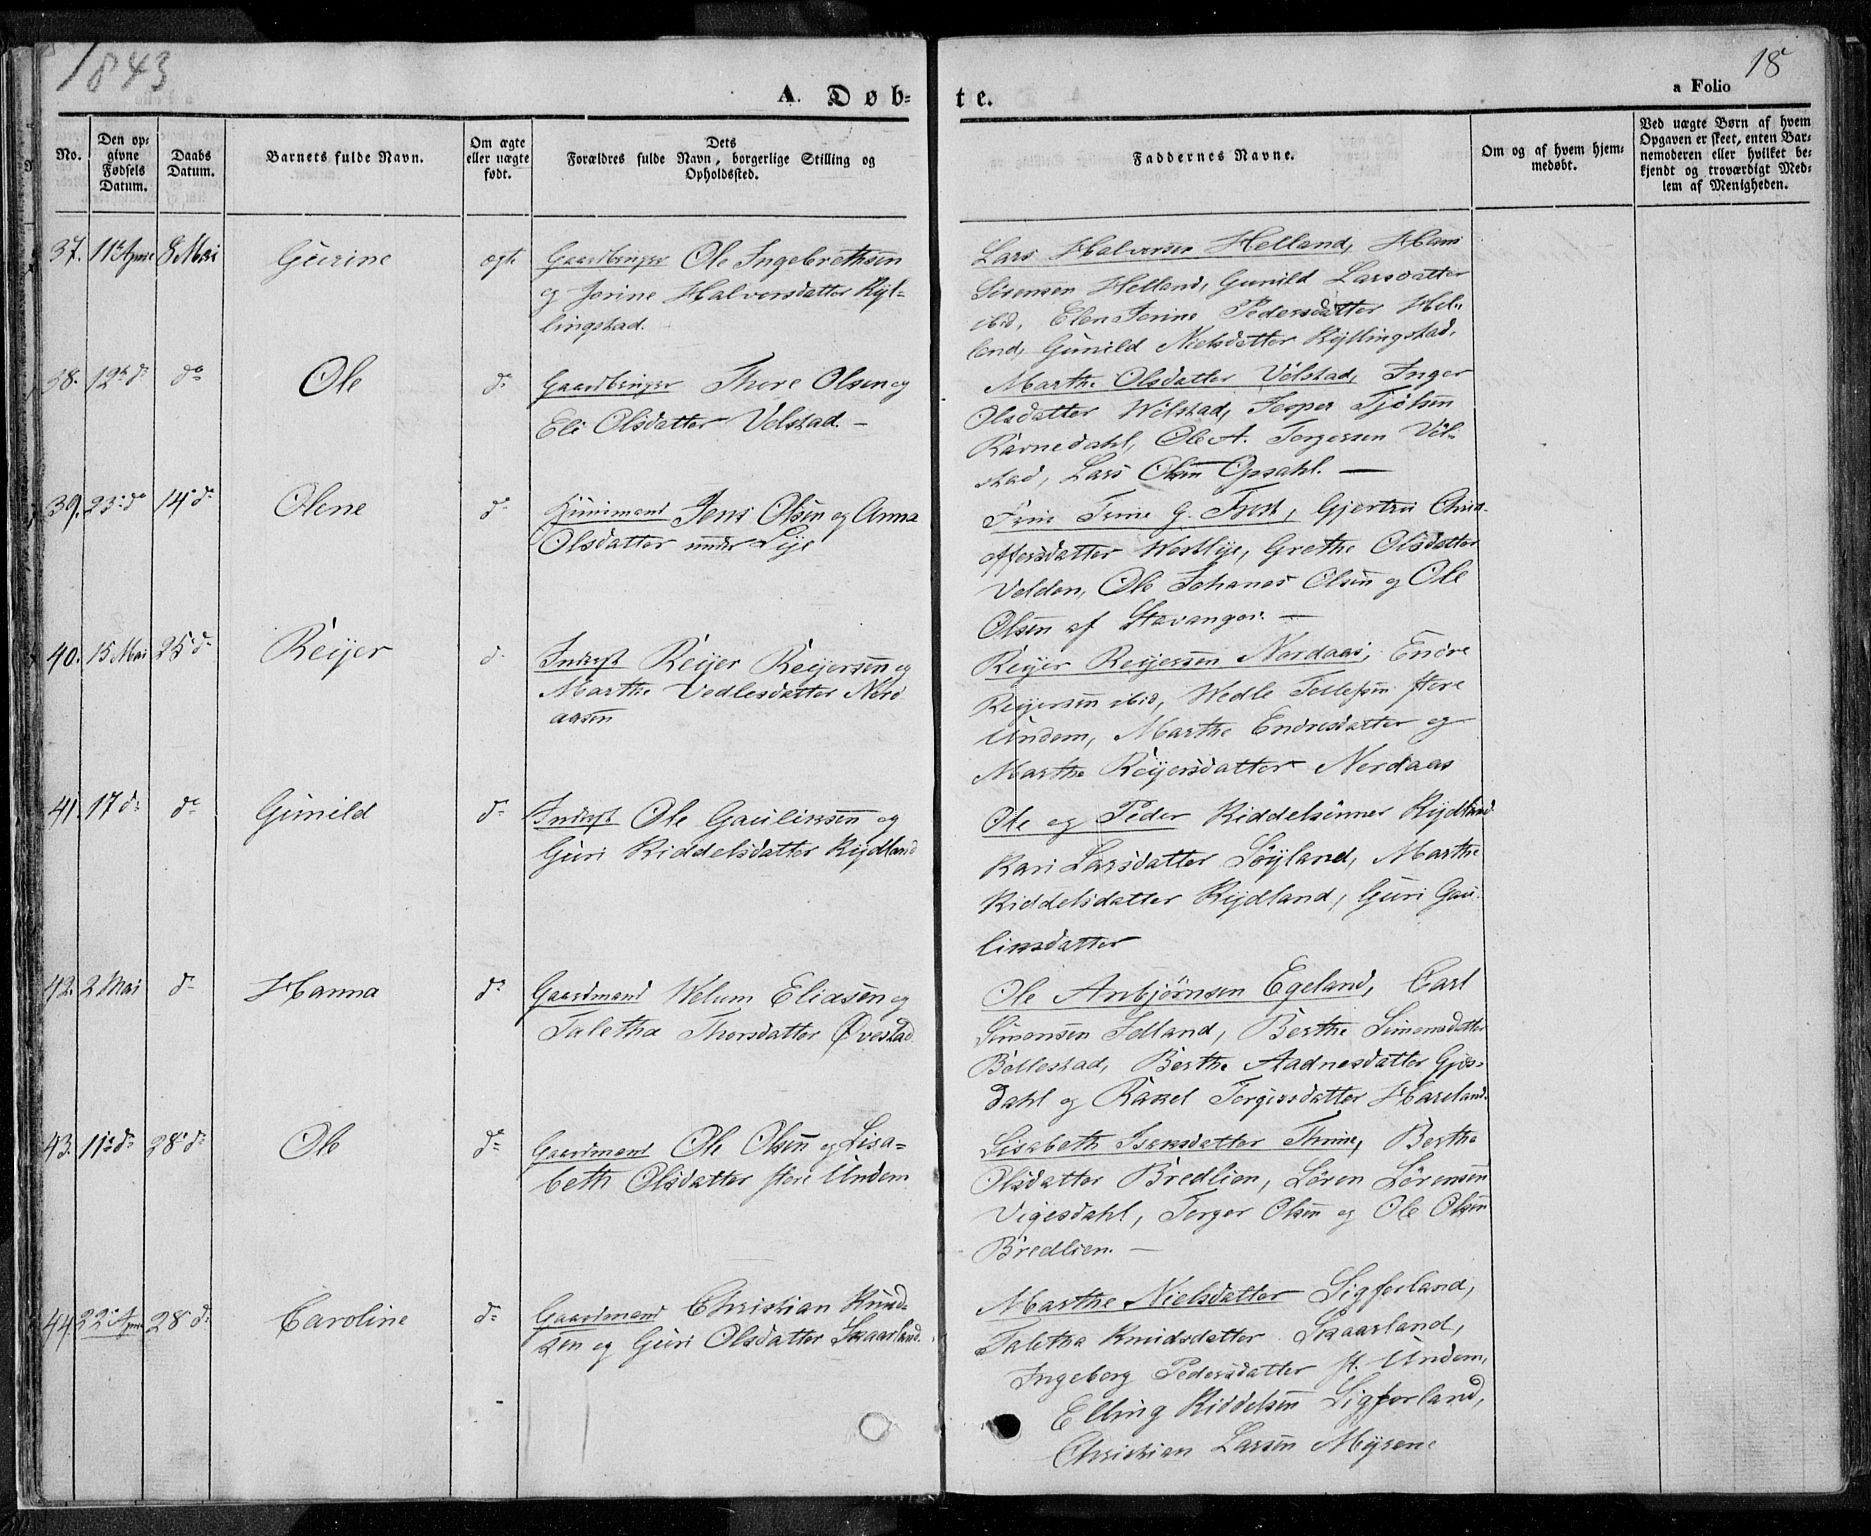 1843
18
A. Døbte.
a Folio
No.
Den opgivne Fødsels Datum.
Daabs Datum.
Barnets fulde Navn.
Om ægte eller uægte født.
Dets Forældres fulde Navn, borgerlige Stilling og Opholdssted.
Faddernes Navne.
Om og af hvem hjemmedøbt.
Ved uægte Børn af hvem Opgaven er skeet, enten Barnemoderen eller hvilket bekjendt og troværdigt Medlem af Menigheden.
37. 11te April 8 Mai Gurine ægte Gaardbruger Ole Ingebrethsen
og Jorine Halvorsdatter Kyl-
lingstad.
Lars Halvorsen Helland, Hans
Sørensen Helland, Gunild Larsdatter
ibid, Elen Serine Pedersdatter Hel-
land, Gunild Nielsdatter Kyllingstad.
38. 12te d: do Ole d: Gaardbruger Thore Olsen og
Eli Olsdatter Velstad. -
Marthe Olsdatter Velstad, Inger
Olsdatter Wølstad, Jesper Tjølsen
Ravnedahl, Ole A. Torgersen Vøl-
stad, Lars Olsen Opsahl. -
39. 23: do 14: d: Olene d: Huusmand Jens Olsen og Anna
Olsdatter under Lye
Trine G. Gjertru Chris-
toffersdatter Westlye, Grethe Olsdatter
Velden, Ole Johanes Olsen og Ole
Olsen af Stavanger. -
40. 15 Mai 25: d: Reijer d: Inderst Reijer Reijersen og
Marthe Vedlesdatter Nord
aasen
Reijer Reijersen Nordaas, Endre
Reijersen ibid, Wedle Tollefsen store
Undem, Marthe Endresdatter og
Marthe Reijersdatter Nordaas
41. 17 d: do Gunild d: Inderst Ole Gaulinsen og
Guri Riddelsdatter Rydland
Ole og Peder Riddelsønner Rydland
Kari Larsdatter Søyland, Marthe
Riddelsdatter Rydland, Guri Gau-
linsdatter
42. 2 Mai d: Hanna d: Gaardmand Welum Eliasen og
Taletha Thorsdatter Øvestad
Ole Anbjørnsen Egeland, Carl
Simonsen Selland, Berthe Simonsdatter
Bollestad, Berthe Aadnesdatter Gjes-
dahl og Rakel Torgersdatter Haveland.
43. 11te d: 28: d: Ole d: Gaardmand Ole Olsen og Lisa-
beth Olsdatter store Undem
Lisabeth Isaksdatter Thime, Berthe
Olsdatter Bredlien, Søren Sørensen
Vigesdahl, Torger Olsen og Ole Olsen
Bredlien. -
44. 22: April 28 d: Caroline d: Gaardmand Christian Knud-
sen og Guri Olsdatter Skaarland.
Marthe Nielsdatter Sigferland,
Taletha Knudsdatter Skaarland,
Ingeborg Pedersdatter st. Undem,
Elling Riddelsen Sigferland,
Christian Larsen Myrene